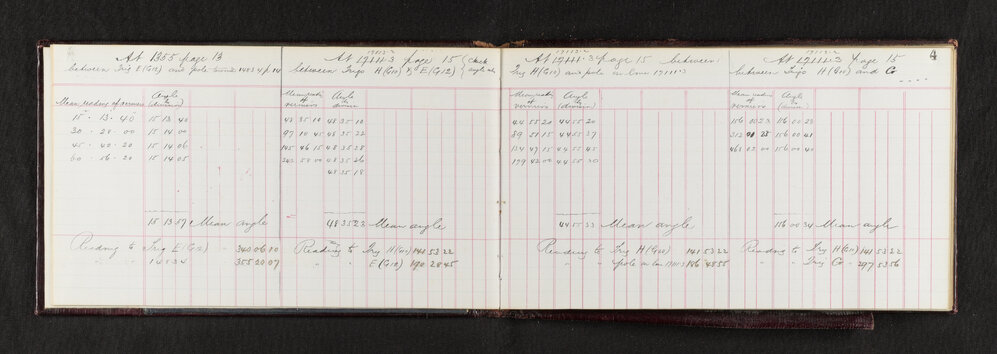 At 1355 page 13
between Trig E (G12) and pole
Mean reading of verniers
Angle
by
(division)
15 . 13 . 40 15 13 40
30 . 28 . 00 15 14 00
45 . 40 . 20 15 14 06
60 . 56 . 20 15 14 05
15 13 57 Mean angle
Reading to Trig E (G12) 340 06 10
" " 355 20 07
17112.2
At page 15 (Check
between Trigs H (G10) & E (G12) angle
Mean reading
of
verniers
Angle
by
division
43 35 10 48 35 10
97 10 45 48 35 22
145 46 15 48 35 28
48 35 26
48 35 18
48 35 23 Mean angle
Reading to Trig H (G10) 141 53 22
" E (G12) 190 28 45
17112.2
At page 15 between
Trig H (G10) and pole on line 17111.3
Mean reading
of
verniers
Angle
by
(division)
44 55 20 44 55 20
89 51 15 44 55 37
134 47 15 44 55 45
179 42 00 44 55 30
44 55 33 Mean angle
Reading to Trig H (G10) 141 53 22
" " pole on line 17111.3 186 48 55
17112.2
At page 15
4
between Trigs H (G10) and Co
Mean reading
of
verniers
Angle
by
(division)
156 00 23 156 00 23
156 00 41
468 02 00 156 00 40
156 00 34 Mean angle
Reading to Trig H (G10) 141 53 22
" " Trig Co 297 53 56